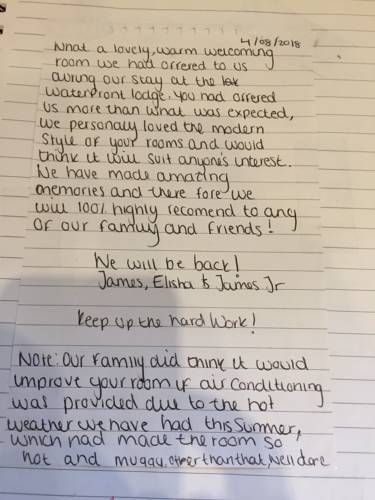 4/08/2018
What a lovely, warm welcoming
room we had offered to us
during our stay at the lake
Waterfront lodge. You had offered
us more than what was expected,
we personally loved the modern
style of your rooms and would
think it will suit anyone's interest.
We have made amazing
memories and there fore we
will 100% highly recomend to any
of our family and friends!
We will be back!
James, Elisha & James Jr
Keep up the hard work!
Note: Our Family did think it would
improve your room if air conditioning
was provided due to the hot
weather we have had this Summer,
which had made the room so
hot and muggy. other than that, Well done